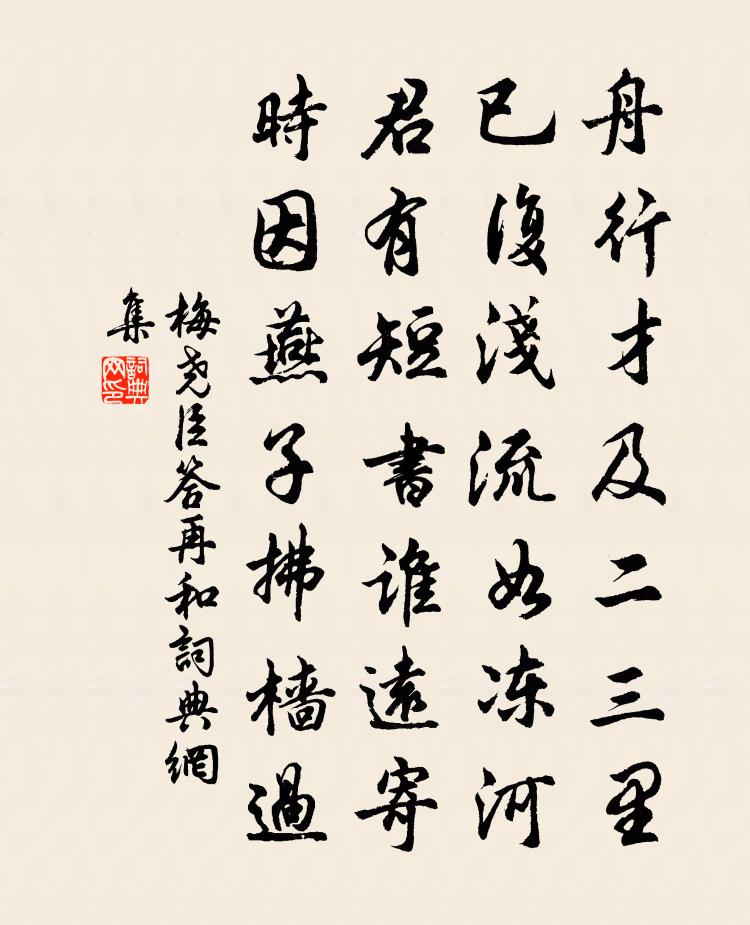 舟行才及二三里
已復淺流如凍河
君有短書誰遠寄
時因燕子拂檣過
梅堯臣答再和詞典網
集
詞典
网印